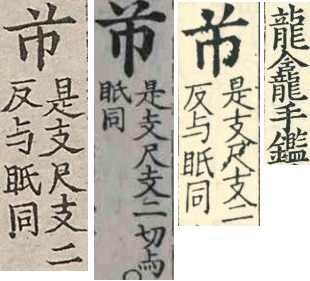 龍龕手鑑
是支尺支二
反与眠同
是支尺支二切与
眠同
是支尺支二
反与眠同